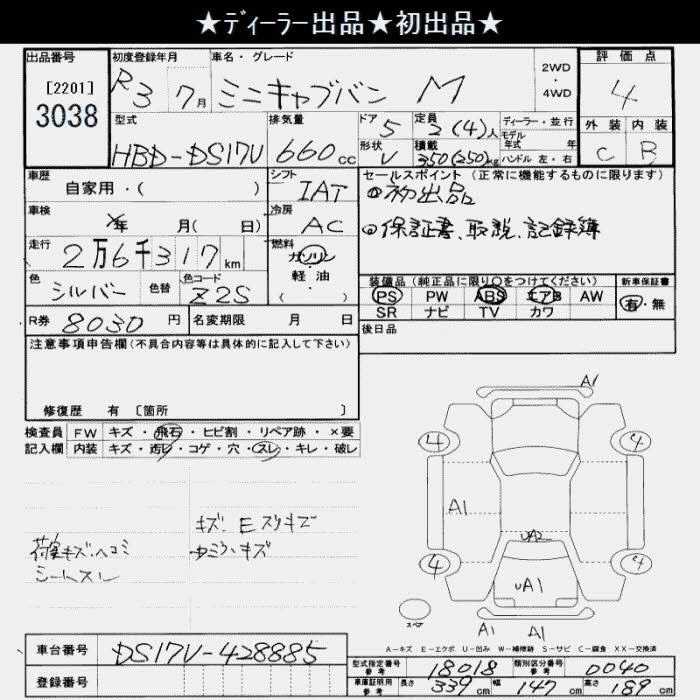 ★ディーラー出品★初出品★
出品番号
[2201]
3038
初度登録年月
R3 7月
車名・グレード
ミニキャブバン M
2WD
・
4WD
評価点
4
外装 内装
C B
型式
HBD-DS17V
排気量
660cc
ドア 5
形状 V
定員 2(4)人
積載 350(250)kg
ディーラー・並行
モデル
年式 年
ハンドル 左・右
車歴
自家用・( )
シフト
IAT
冷房
AC
車検
年 月( 日)
走行
2万6千317km
燃料
ガソリン
軽・油
( )
色
シルバー
色替
色コード
Z2S
R券 8030円
名変期限 月 日
セールスポイント(正常に機能するものに限ります)
初出品
保証書、取説、記録簿
装備品(純正品に限り○をつけてください)
PS PW ABS エアB AW
SR ナビ TV カワ
新車保証書
有・無
後日品
注意事項申告欄(不具合内容等は具体的に記入して下さい)
修復歴 有 〔箇所 〕
検査員
記入欄
FW キズ・飛石・ヒビ割・リペア跡・×要
内装 キズ・汚レ・コゲ・穴・スレ・キレ・破レ
荷室キズ、ヘコミ
シートスレ
キズ、Eスリキズ
キズ
A1
4 4
A1
UA2
4 4
UA1
スペア
A1 A1
A−キズ E−エクボ U−凹み W−補修跡 S−サビ C−腐食 XX−交換済
車台番号
DS17V-428885
登録番号
型式指定番号
参考
18018
類別区分番号
参考
0040
車庫証明用
参考
長さ 339cm
幅 147cm
高さ 189cm